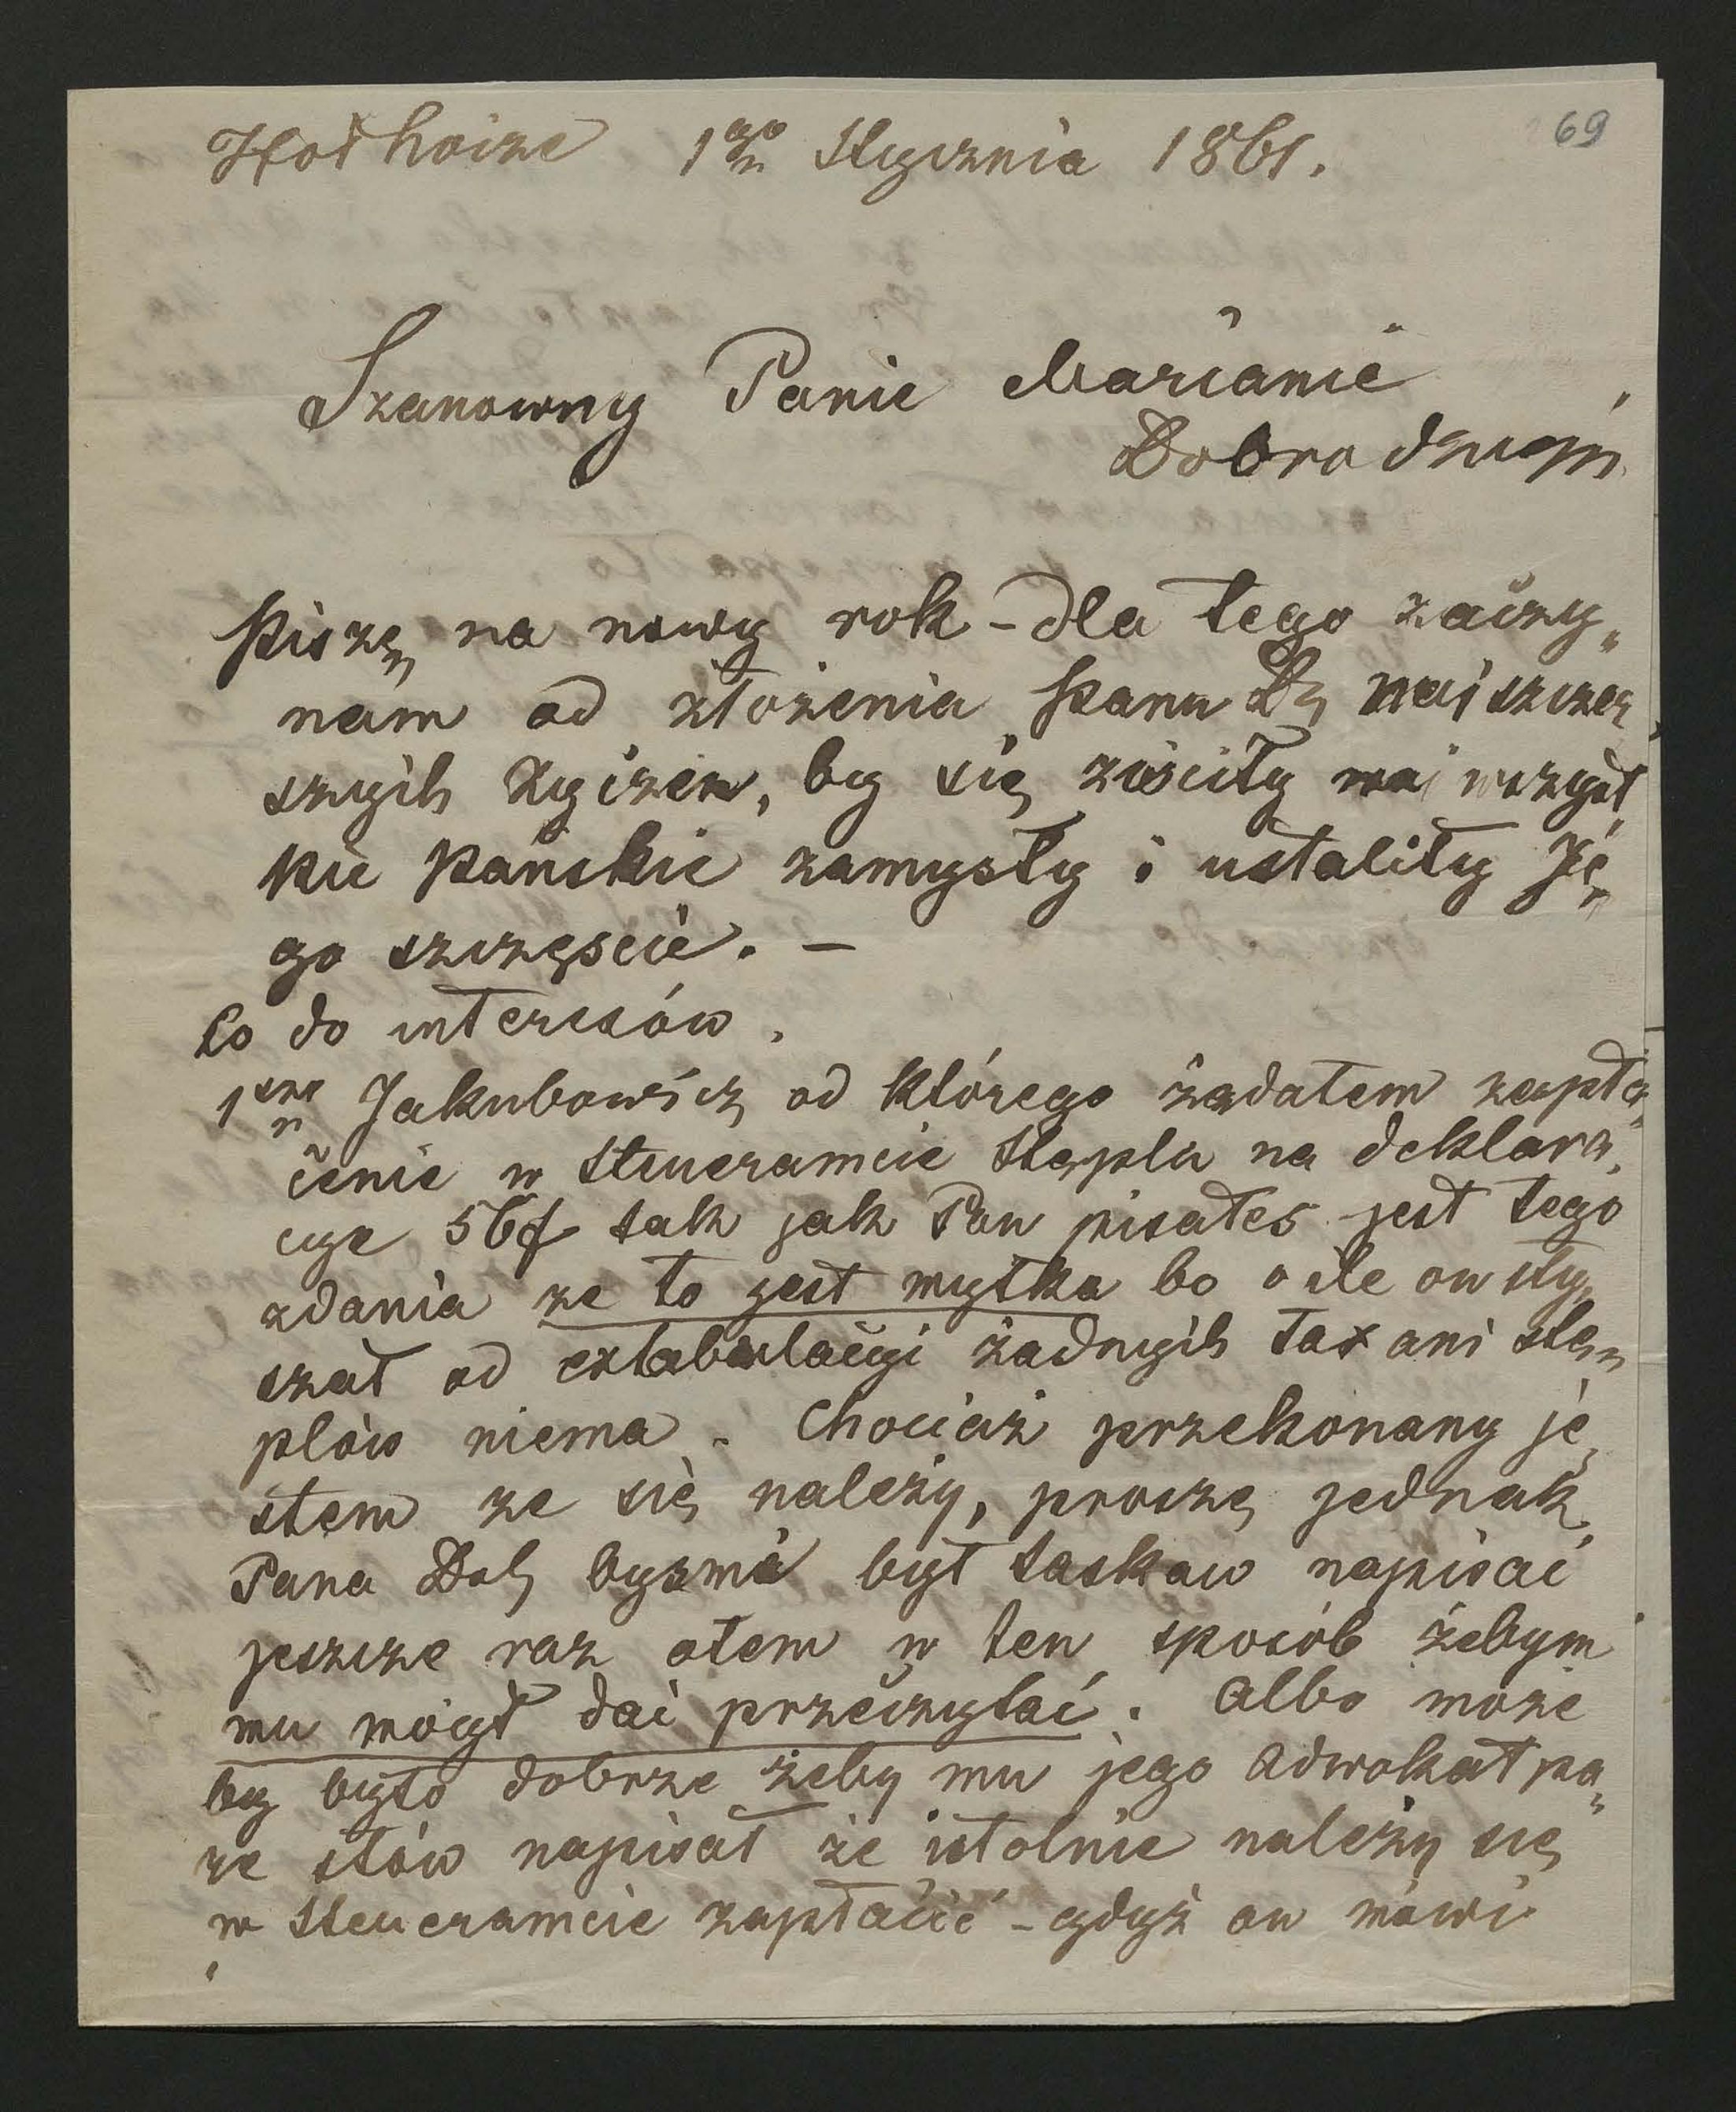 69
Podhaice 1go Stycznia 1861.
Szanowny Panie Marianie
Dobrodzieju
Piszę na nowy rok - dla tego zaczy„
nam od złożenia Panu Db najszczer„
szych życzeń, by się ziściły wszyst„
kie Pańskie zamysły i ustaliły Je„
go szczęscie. —
Co do interesów.
1sze Jakubowicz od którego żądałem zapła„
cenie w Steueramcie Stępla na deklara„
cye 56f tak jak Pan pisałeś jest tego
zdania ze to jest myłka bo o ile on sły„
szał od extabulacyi żadnych tax ani stę„
plów niema. Chociaż przekonany je„
stem ze się należy, proszę jednak
Pana Dob byś mi był łaskaw napisać
jeszcze raz otem w ten sposób żebym
mu mógł dać przeczytać. Albo może
by było dobrze żeby mu jego adwokat pa„
re słów napisał że istotnie należy się
w Steueramcie zapłacić - gdyż on mówi